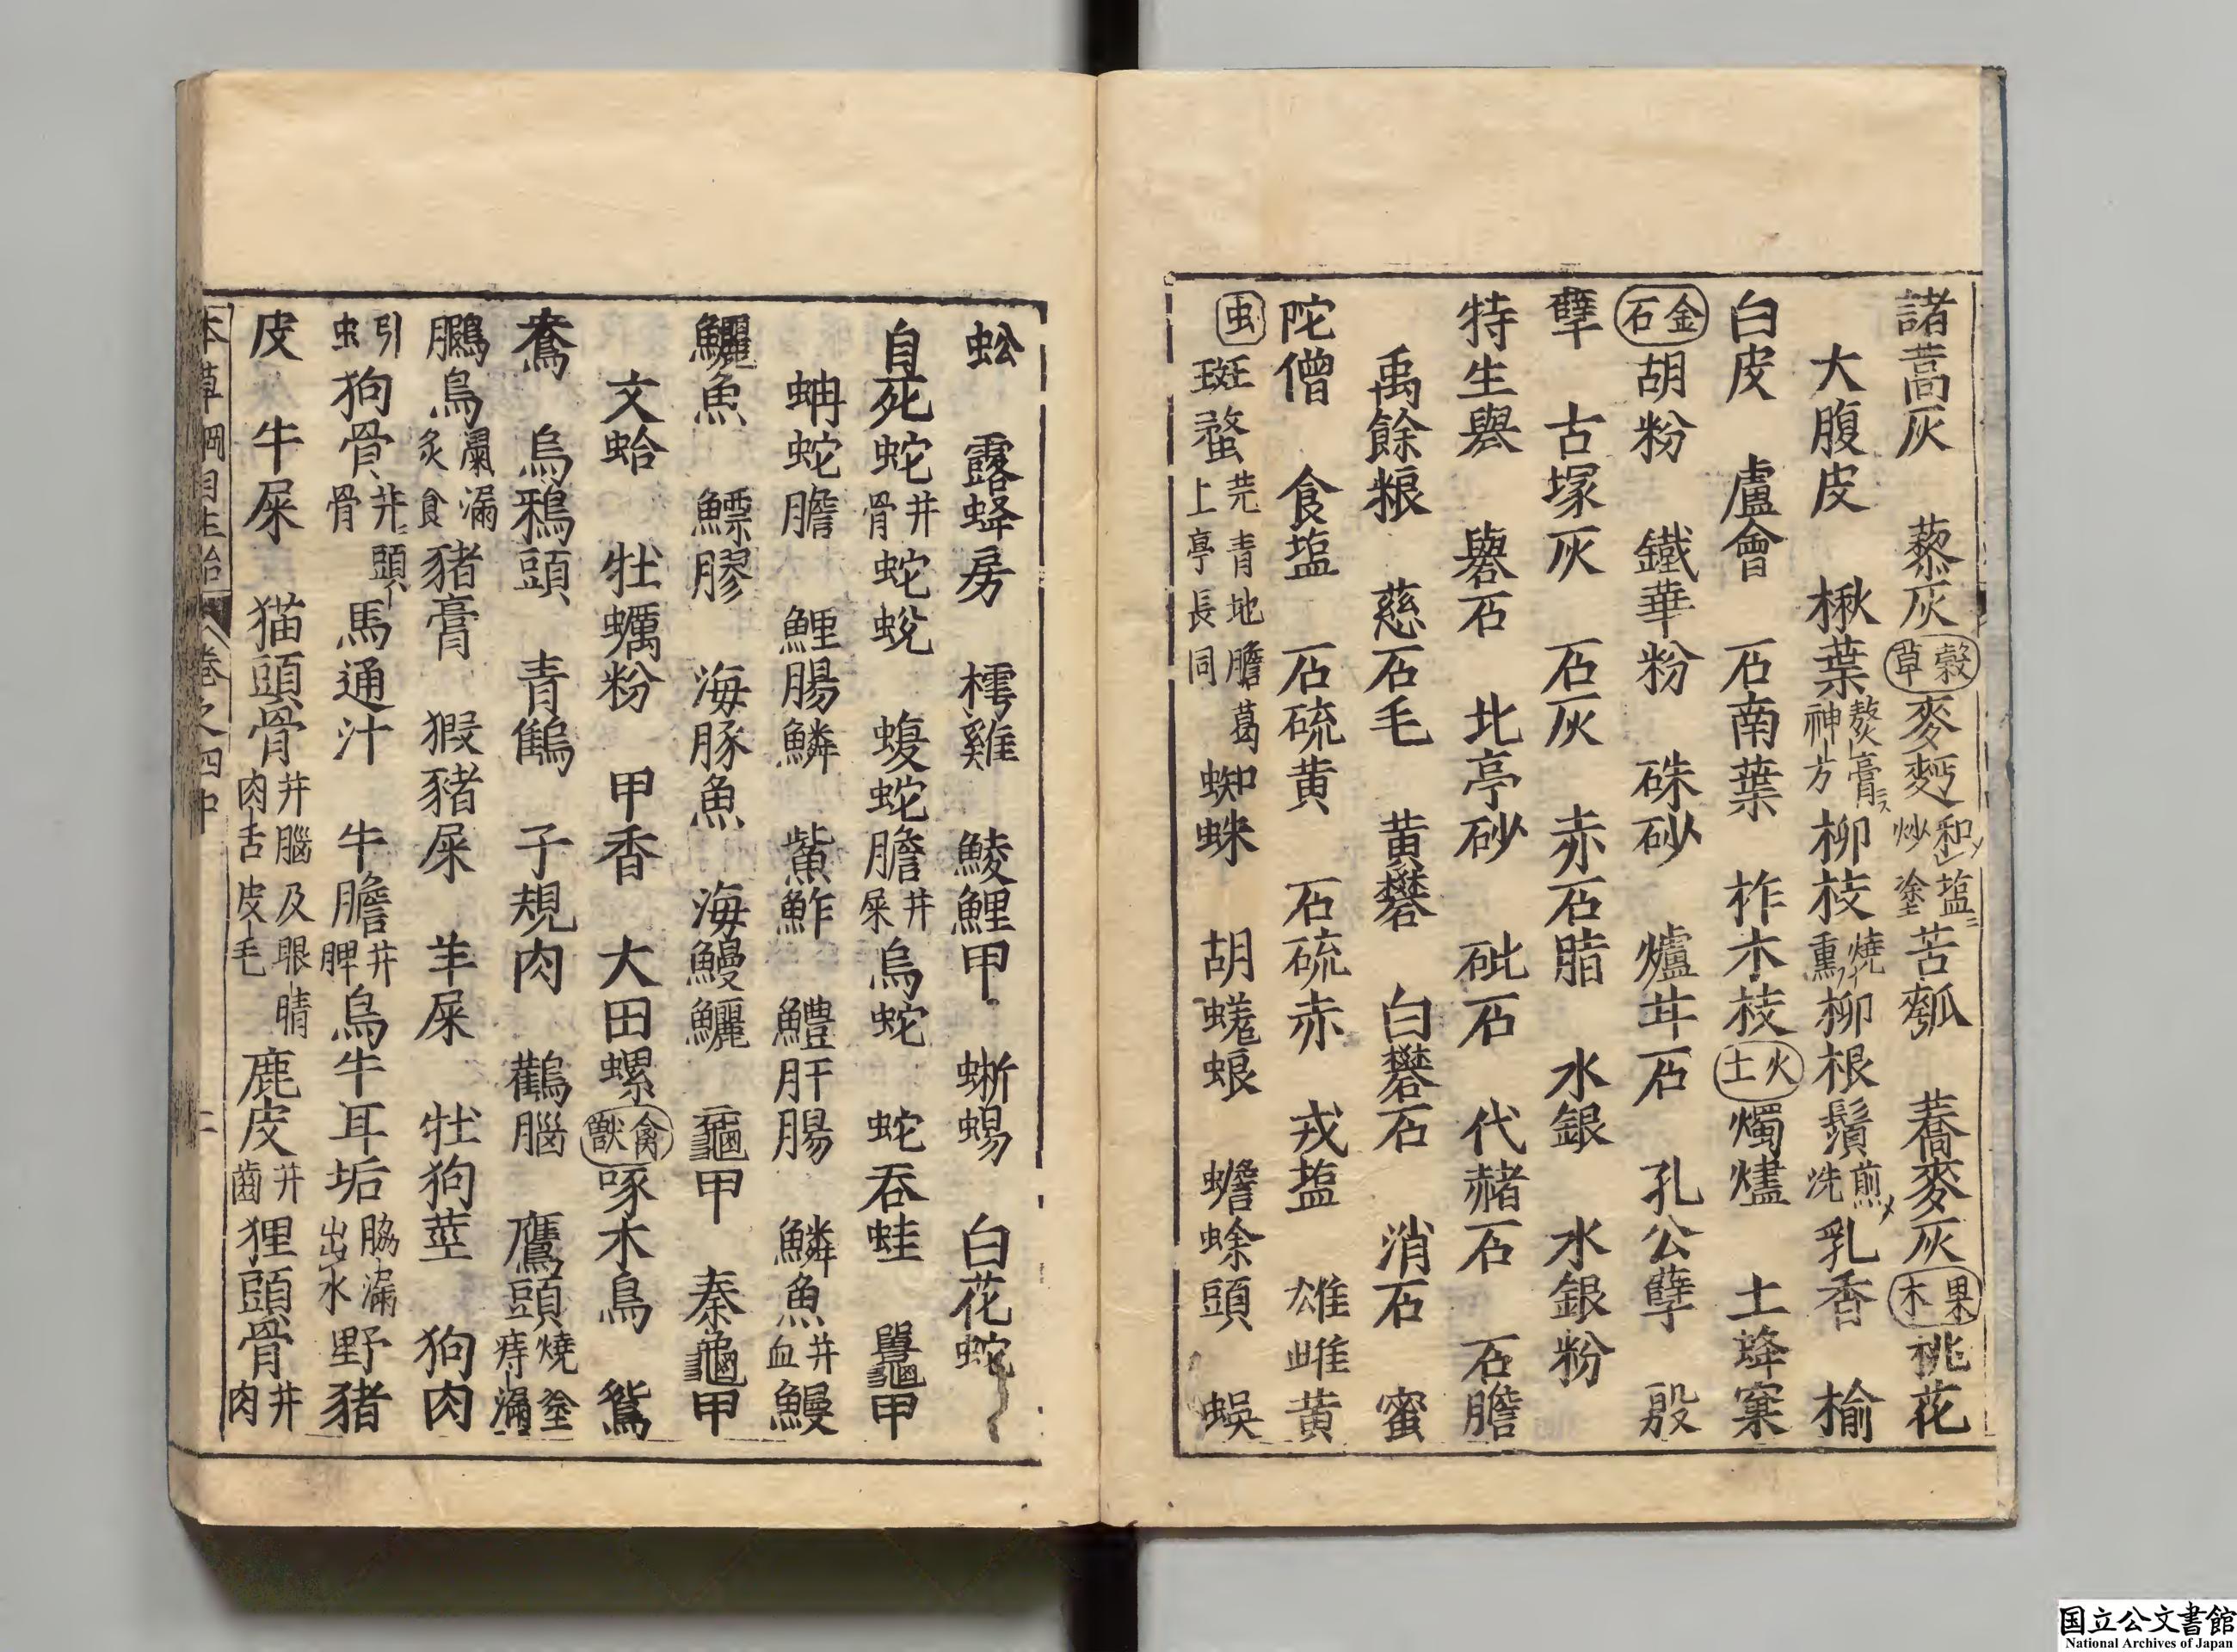 諸蒿灰　藜灰(穀草)麥麪和塩炒塗苦瓠　蕎麥灰(果木)桃花
大腹皮　楸葉熬膏神方柳枝燒熏柳根鬚煎洗乳香　榆
白皮　盧會　石南葉　柞木枝(火土)燭燼　土蜂窠
(金石)胡粉　鐵華粉　硃砂　爐甘石　孔公孽　殷
孽　古塚灰　石灰　赤石脂　水銀　水銀粉
特生礜　礜石　北亭砂　砒石　代赭石　石膽
禹餘粮　慈石毛　黄礬　白礬石　消石　蜜
陀僧　食塩　石硫黄　石硫赤　戎塩　雄雌黄
(虫)斑蝥芫青地膽葛上亭長同蜘蛛　胡蜣蜋　蟾蜍頭　蜈
蚣　露蜂房　樗雞　鯪鯉甲　蜥蜴　白花蛇
自死蛇并骨蛇蛻　蝮蛇膽并屎烏蛇　蛇吞蛙　鼉甲
蚺蛇膽　鯉腸鱗　鮆鮓　鱧肝腸　鱗魚并血鰻
鱺魚　鰾膠　海豚魚　海鰻鱺　龜甲　秦龜甲
文蛤　牡蠣粉　甲香　大田螺(禽獸)啄木鳥　鴛
鴦　烏鴉頭　青鶴　子規肉　鸛腦　鷹頭燒塗痔漏
鸊鳥瘰漏炙食猪膏　猳猪屎　羊屎　牡狗莖　狗肉
引虫狗骨并頭骨馬通汁　牛膽并脾烏牛耳垢脇漏出水野猪
皮　牛屎　猫頭骨并腦及眼睛肉舌皮毛鹿皮并齒狸頭骨并肉
本草綱目主治　卷之四中　二
国立公文書館
National Archives of Japan